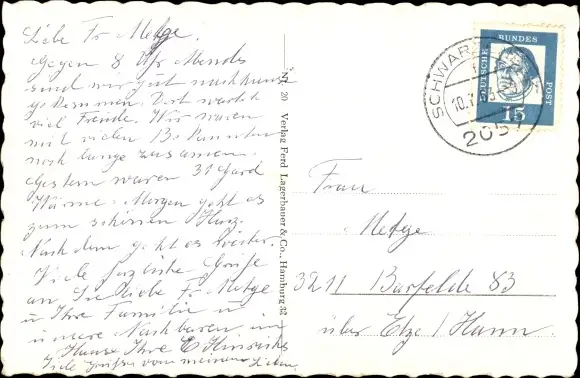 Liebe Fr Metge.
Gegen 8 Uhr Abends
sind wir gut nachhause
gekommen. Dort war
viel Freude. Wir waren
mit vielen Bekannten
noch lange zusamen.
Gestern waren 31 Grad
Wärme. Morgen geht es
zum schönen Harz.
Nach dem geht es weiter.
Viele herzliche Grüße
an Sie liebe Fr Metge
u Ihre Familie u
unsere Nachbaren im
Hause Ihre E Hinrichs
Viele Grüße von meinen Lieben.
20 Verlag Ferd Lagerbauer & Co., Hamburg 32
SCHWAR
10.7.
2057
DEUTSCHE BUNDES POST
15
Frau
Metge
3211 Barfelde 83
über Elze / Hann.